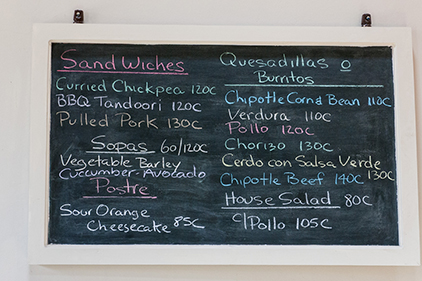 Sandwiches
Curried Chickpea 120C
BBQ Tandoori 120C
Pulled Pork 130C
Sopas 60/120C
Vegetable Barley
Cucumber-Avocado
Postre
Sour Orange
Cheesecake 85C
Quesadillas o
Burritos
Chipotle Corn & Bean 110C
Verdura 110C
Pollo 120C
Chorizo 130C
Cerdo con Salsa Verde 130C
Chipotle Beef 140C
House Salad 80C
c/Pollo 105C